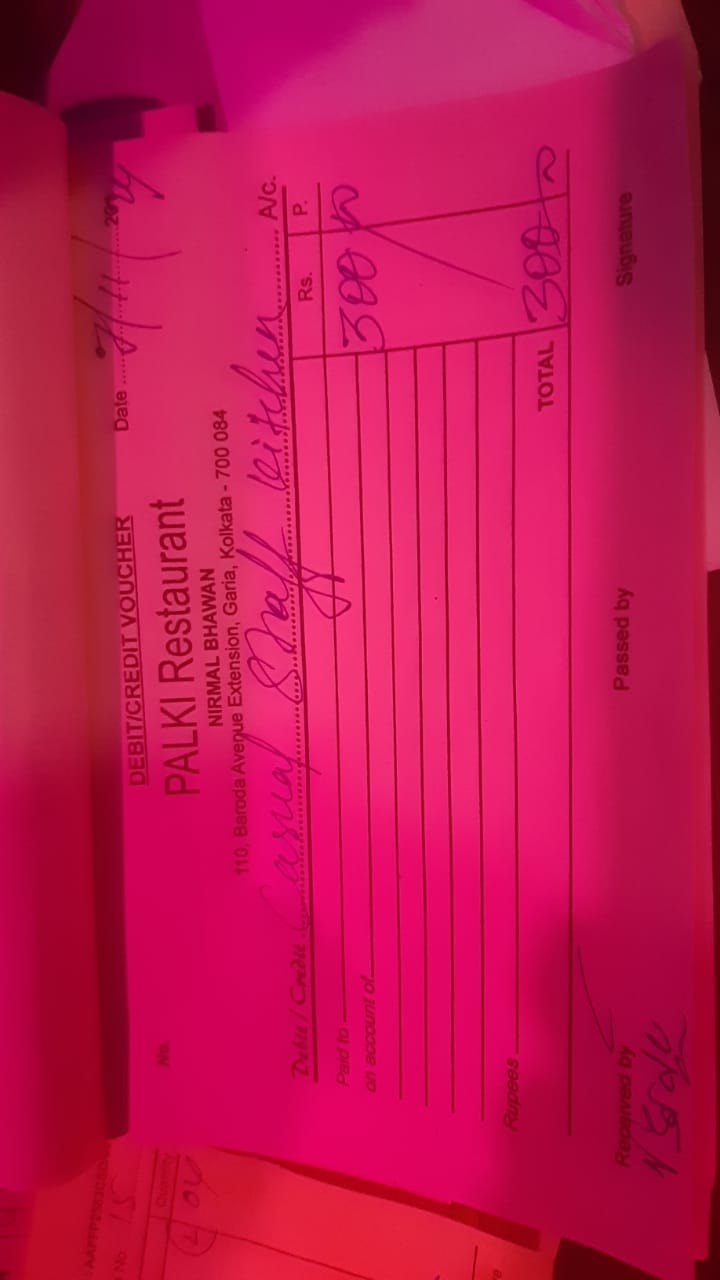 DEBIT/CREDIT VOUCHER
No. Date 7/11/2024
PALKI Restaurant
NIRMAL BHAWAN
110, Baroda Avenue Extension, Garia, Kolkata - 700 084
Debit / Credit Casual Staff kitchen A/c.
Rs. P.
Paid to 300
on account of
Rupees TOTAL 300
Received by Passed by Signature
No. 15
Quantity